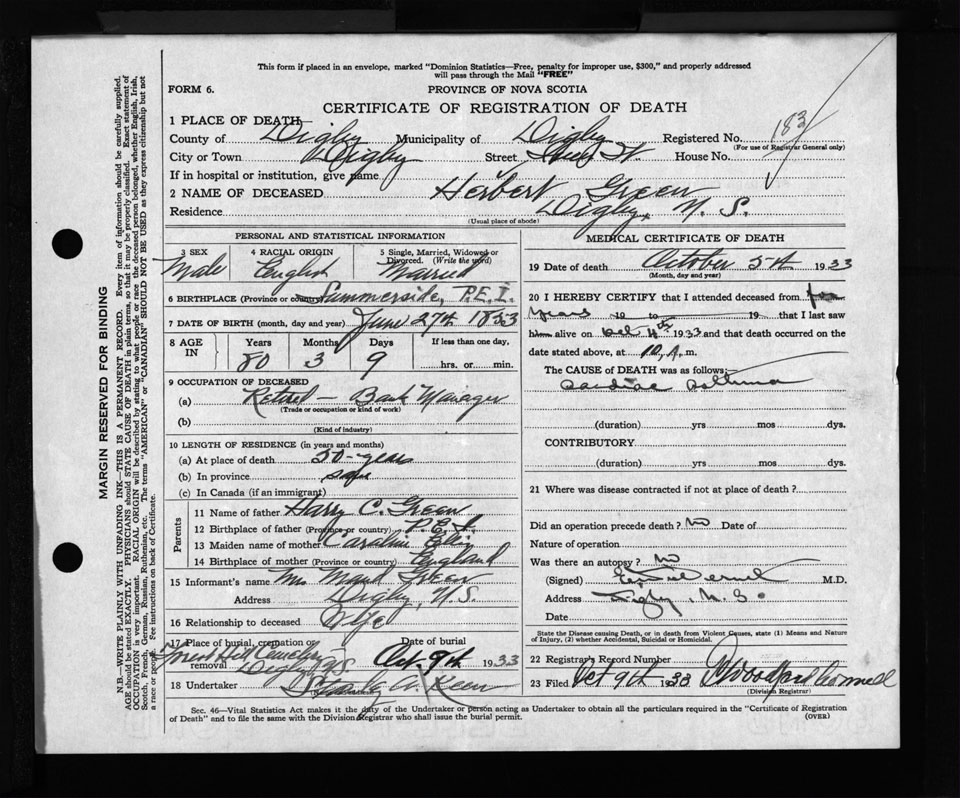 This form if placed in an envelope, marked "Dominion Statistics—Free, penalty for improper use, $300," and properly addressed
will pass through the Mail "FREE"
FORM 6.
PROVINCE OF NOVA SCOTIA
CERTIFICATE OF REGISTRATION OF DEATH
1 PLACE OF DEATH
County of Digby Municipality of Digby Registered No. 183
(For use of Registrar General only)
City or Town Digby Street St. House No.
If in hospital or institution, give name
2 NAME OF DECEASED Herbert Green
Residence Digby, N. S.
(Usual place of abode)
PERSONAL AND STATISTICAL INFORMATION
3 SEX 4 RACIAL ORIGIN 5 Single, Married, Widowed or
Divorced. (Write the word)
Male English Married
6 BIRTHPLACE (Province or country) Summerside, P.E.I.
7 DATE OF BIRTH (month, day and year) June 27th 1853
8 AGE IN Years Months Days If less than one day,
80 3 9 hrs. or min.
9 OCCUPATION OF DECEASED
(a) Retired — Bank Manager
(Trade or occupation or kind of work)
(b)
(Kind of industry)
10 LENGTH OF RESIDENCE (in years and months)
(a) At place of death 50 - years
(b) In province
(c) In Canada (if an immigrant)
Parents
11 Name of father Harry C. Green
12 Birthplace of father (Province or country) P.E.I.
13 Maiden name of mother Caroline
14 Birthplace of mother (Province or country) England
15 Informant's name Mrs Maud Green
Address Digby, N.S.
16 Relationship to deceased Wife
17 Place of burial, cremation or removal Cemetery Digby N S Date of burial Oct. 9th 1933
18 Undertaker A. Keen
MEDICAL CERTIFICATE OF DEATH
19 Date of death October 5th 1933
(Month, day and year)
20 I HEREBY CERTIFY that I attended deceased from for
years 19 to 19 that I last saw
him alive on Oct 4th 1933 and that death occurred on the
date stated above, at 10 A. m.
The CAUSE of DEATH was as follows:
Cardiac Asthma
(duration) yrs mos dys.
CONTRIBUTORY
(duration) yrs mos dys.
21 Where was disease contracted if not at place of death?
Did an operation precede death? No Date of
Nature of operation
Was there an autopsy? No
(Signed) M.D.
Address Digby, N.S.
Date
State the Disease causing Death, or in death from Violent Causes, state (1) Means and Nature
of Injury, (2) whether Accidental, Suicidal or Homicidal.
22 Registrar's Record Number
23 Filed Oct 9th 1933
(Division Registrar)
Sec. 46—Vital Statistics Act makes it the duty of the Undertaker or person acting as Undertaker to obtain all the particulars required in the "Certificate of Registration
of Death" and to file the same with the Division Registrar who shall issue the burial permit. (OVER)
MARGIN RESERVED FOR BINDING
N.B.—WRITE PLAINLY WITH UNFADING INK—THIS IS A PERMANENT RECORD. Every item of information should be carefully supplied.
AGE should be stated EXACTLY. PHYSICIANS should STATE CAUSE OF DEATH in plain terms, so that it may be properly classified. Exact statement of
OCCUPATION is very important. RACIAL ORIGIN will be described by stating to what people or race the deceased person belonged, whether English, Irish,
Scotch, French, German, Russian, Ruthenian, etc. The terms "AMERICAN" or "CANADIAN" SHOULD NOT BE USED as they express citizenship but not
a race or people. See instructions on back of Certificate.